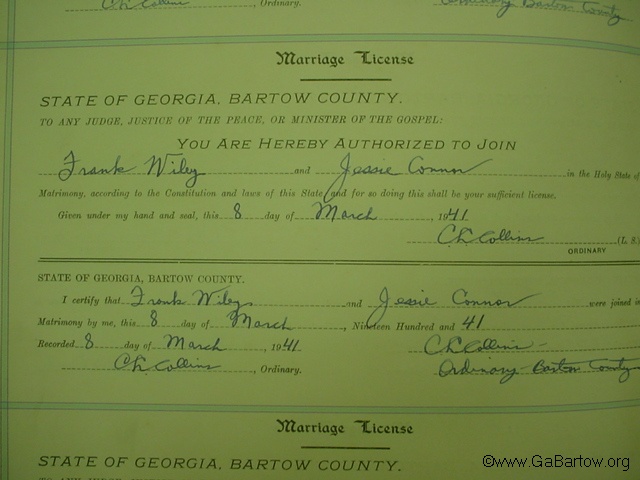 Ch Collins, Ordinary. Ordinary Bartow County
Marriage License
STATE OF GEORGIA, BARTOW COUNTY.
TO ANY JUDGE, JUSTICE OF THE PEACE, OR MINISTER OF THE GOSPEL:
YOU ARE HEREBY AUTHORIZED TO JOIN
Frank Wiley and Jessie Connor in the Holy State of
Matrimony, according to the Constitution and laws of this State, and for so doing this shall be your sufficient license.
Given under my hand and seal, this 8 day of March, 1941
Ch Collins (L S)
ORDINARY
STATE OF GEORGIA, BARTOW COUNTY.
I certify that Frank Wiley and Jessie Connor were joined in
Matrimony by me, this 8 day of March, Nineteen Hundred and 41
Recorded 8 day of March, 1941 Ch Collins
Ch Collins, Ordinary. Ordinary Bartow County
Marriage License
STATE OF GEORGIA, BARTOW COUNTY.
©www.GaBartow.org
TO ANY JUDGE, JUSTICE OF THE PEACE, OR MINISTER OF THE GOSPEL: